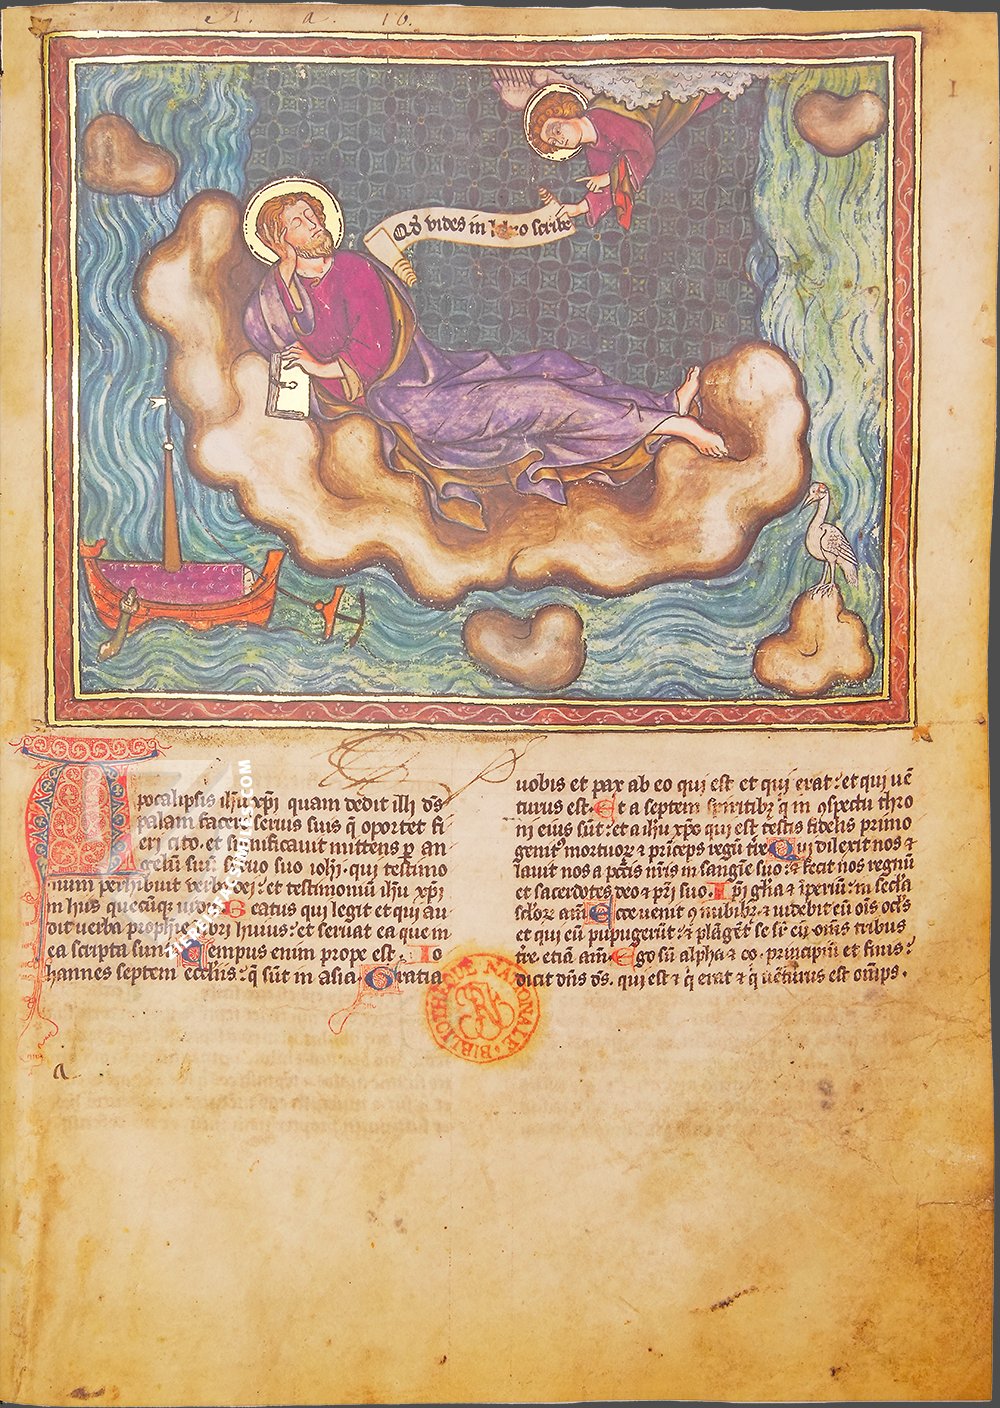 a. 16.
I
Qd vides in libro scribe
Apocalipsis ihu xpi quam dedit illi ds
palam facere seruis suis q̄ oportet fi
eri cito. et significauit mittens p an
gelum suū seruo suo iohi. qui testimo
nium perhibuit verbo dei: et testimoniū ihu xpi
in hijs quecūq uidit. Beatus qui legit et qui au
dit verba prophie libri huius: et seruat ea que in
ea scripta sunt. Tempus enim prope est. Io
hannes septem eccliis: q̄ sūt in asia. Gratia
uobis et pax ab eo qui est et qui erat: et qui uē
turus est. Et a septem spiritibȝ q in ꝯspectu thro
ni eius sūt: et a ihu xpo qui est testis fidelis primo
genitꝰ mortuoꝝ ⁊ prīceps regū tre. Qui dilexit nos ⁊
lauit nos a pctis nris in sangīe suo: ⁊ fecit nos regnū
et sacerdotes deo ⁊ pri suo. Ipi glia ⁊ īperiū: in secla
scloꝝ amē. Ecce uenit cū nubibꝫ: ⁊ uidebit eū oīs ocls
et qui eū pupugerūt: ⁊ plāgēt se sr eū oīns tribus
tre etiā amē. Ego sū alpha ⁊ ω. principiū et finis:
dicit dns ds. qui est ⁊ q̇ erat ⁊ q̇ uēturus est omīps.
BIBLIOTHÈQUE NATIONALE
BN
a